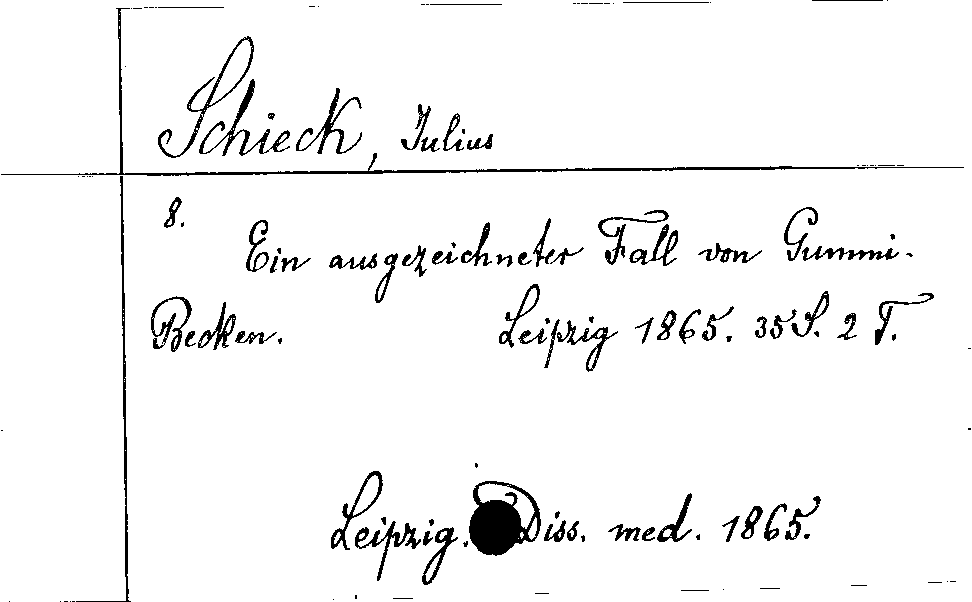 Schieck, Julius
8.
Ein ausgezeichneter Fall von Gummi-
Becken. Leipzig 1865. 35 S. 2 T.
Leipzig. Diss. med. 1865.